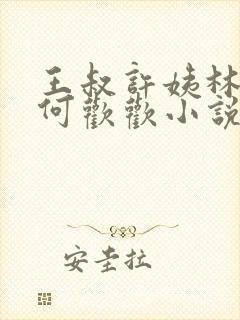 王叔許姨林
何歡歡小說
安圭拉